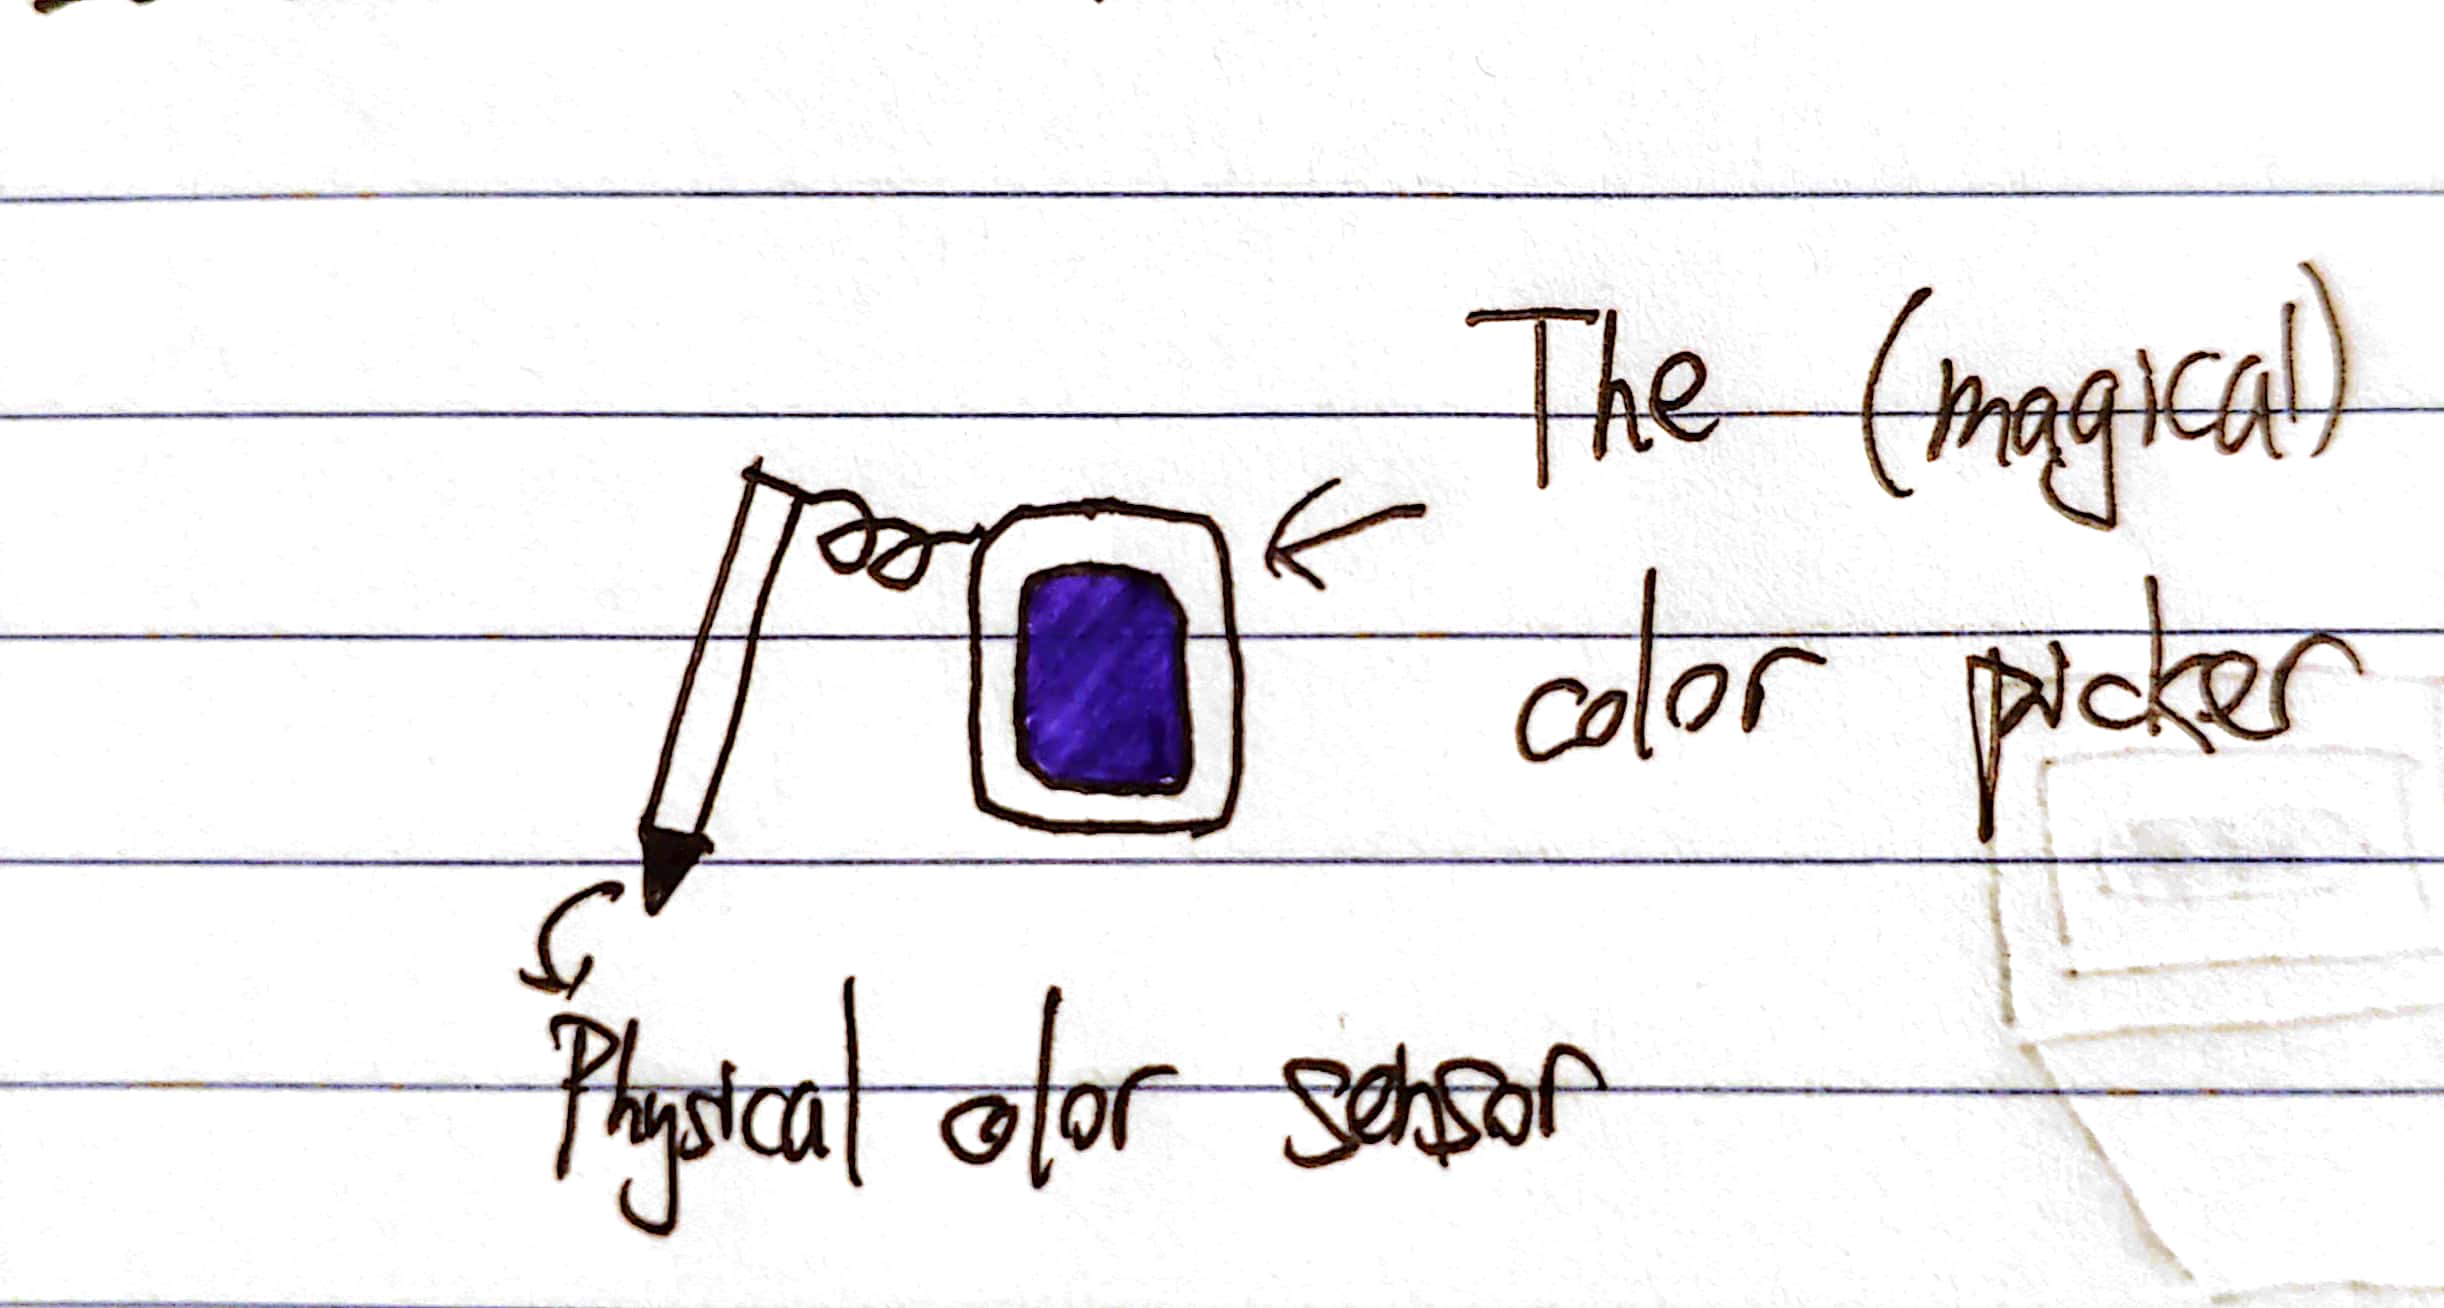 The (magical)
color picker
Physical color sensor